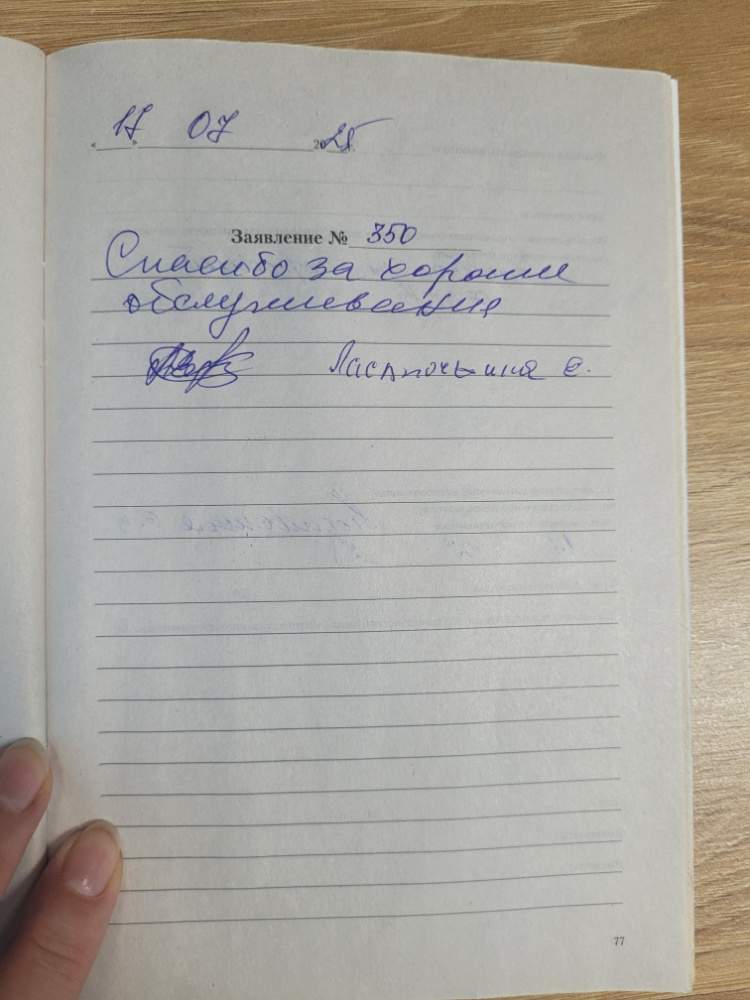 « 17 » 07 2025
Заявление № 350
Спасибо за хорошие
обслуживания
е.
77